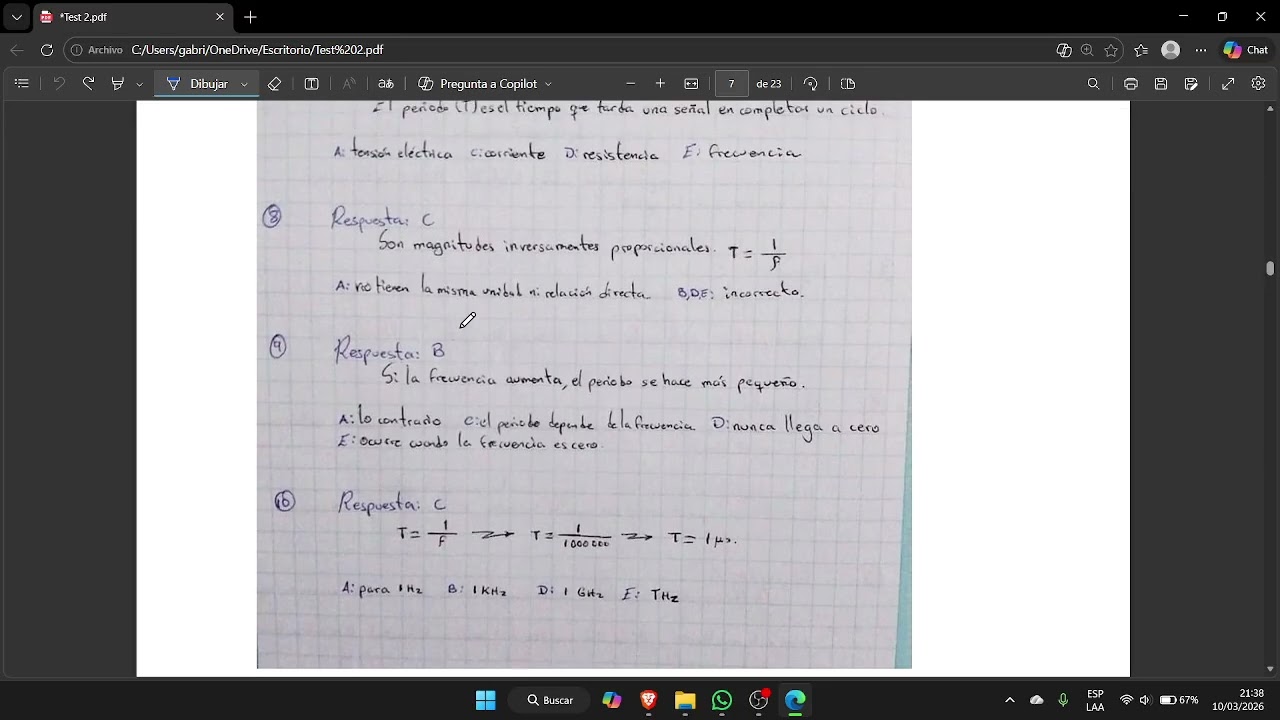 *Test 2.pdf
Archivo C:/Users/gabri/OneDrive/Escritorio/Test%202.pdf
Chat
Dibujar
Pregunta a Copilot
7 de 23
El periodo (T) es el tiempo que tarda una señal en completar un ciclo.
A: tensión eléctrica C: corriente D: resistencia E: frecuencia
8 Respuesta: C
Son magnitudes inversamentes proporcionales. T = 1/f
A: no tienen la misma unidad ni relación directa. B,D,E: incorrecto.
9 Respuesta: B
Si la frecuencia aumenta, el periodo se hace más pequeño.
A: lo contrario C: el periodo depende de la frecuencia D: nunca llega a cero
E: ocurre cuando la frecuencia es cero.
10 Respuesta: C
T = 1/f → T = 1/1000000 → T = 1 µs.
A: para 1 Hz B: 1 KHz D: 1 GHz E: THz
Buscar
ESP
LAA
67%
21:38
10/03/2026